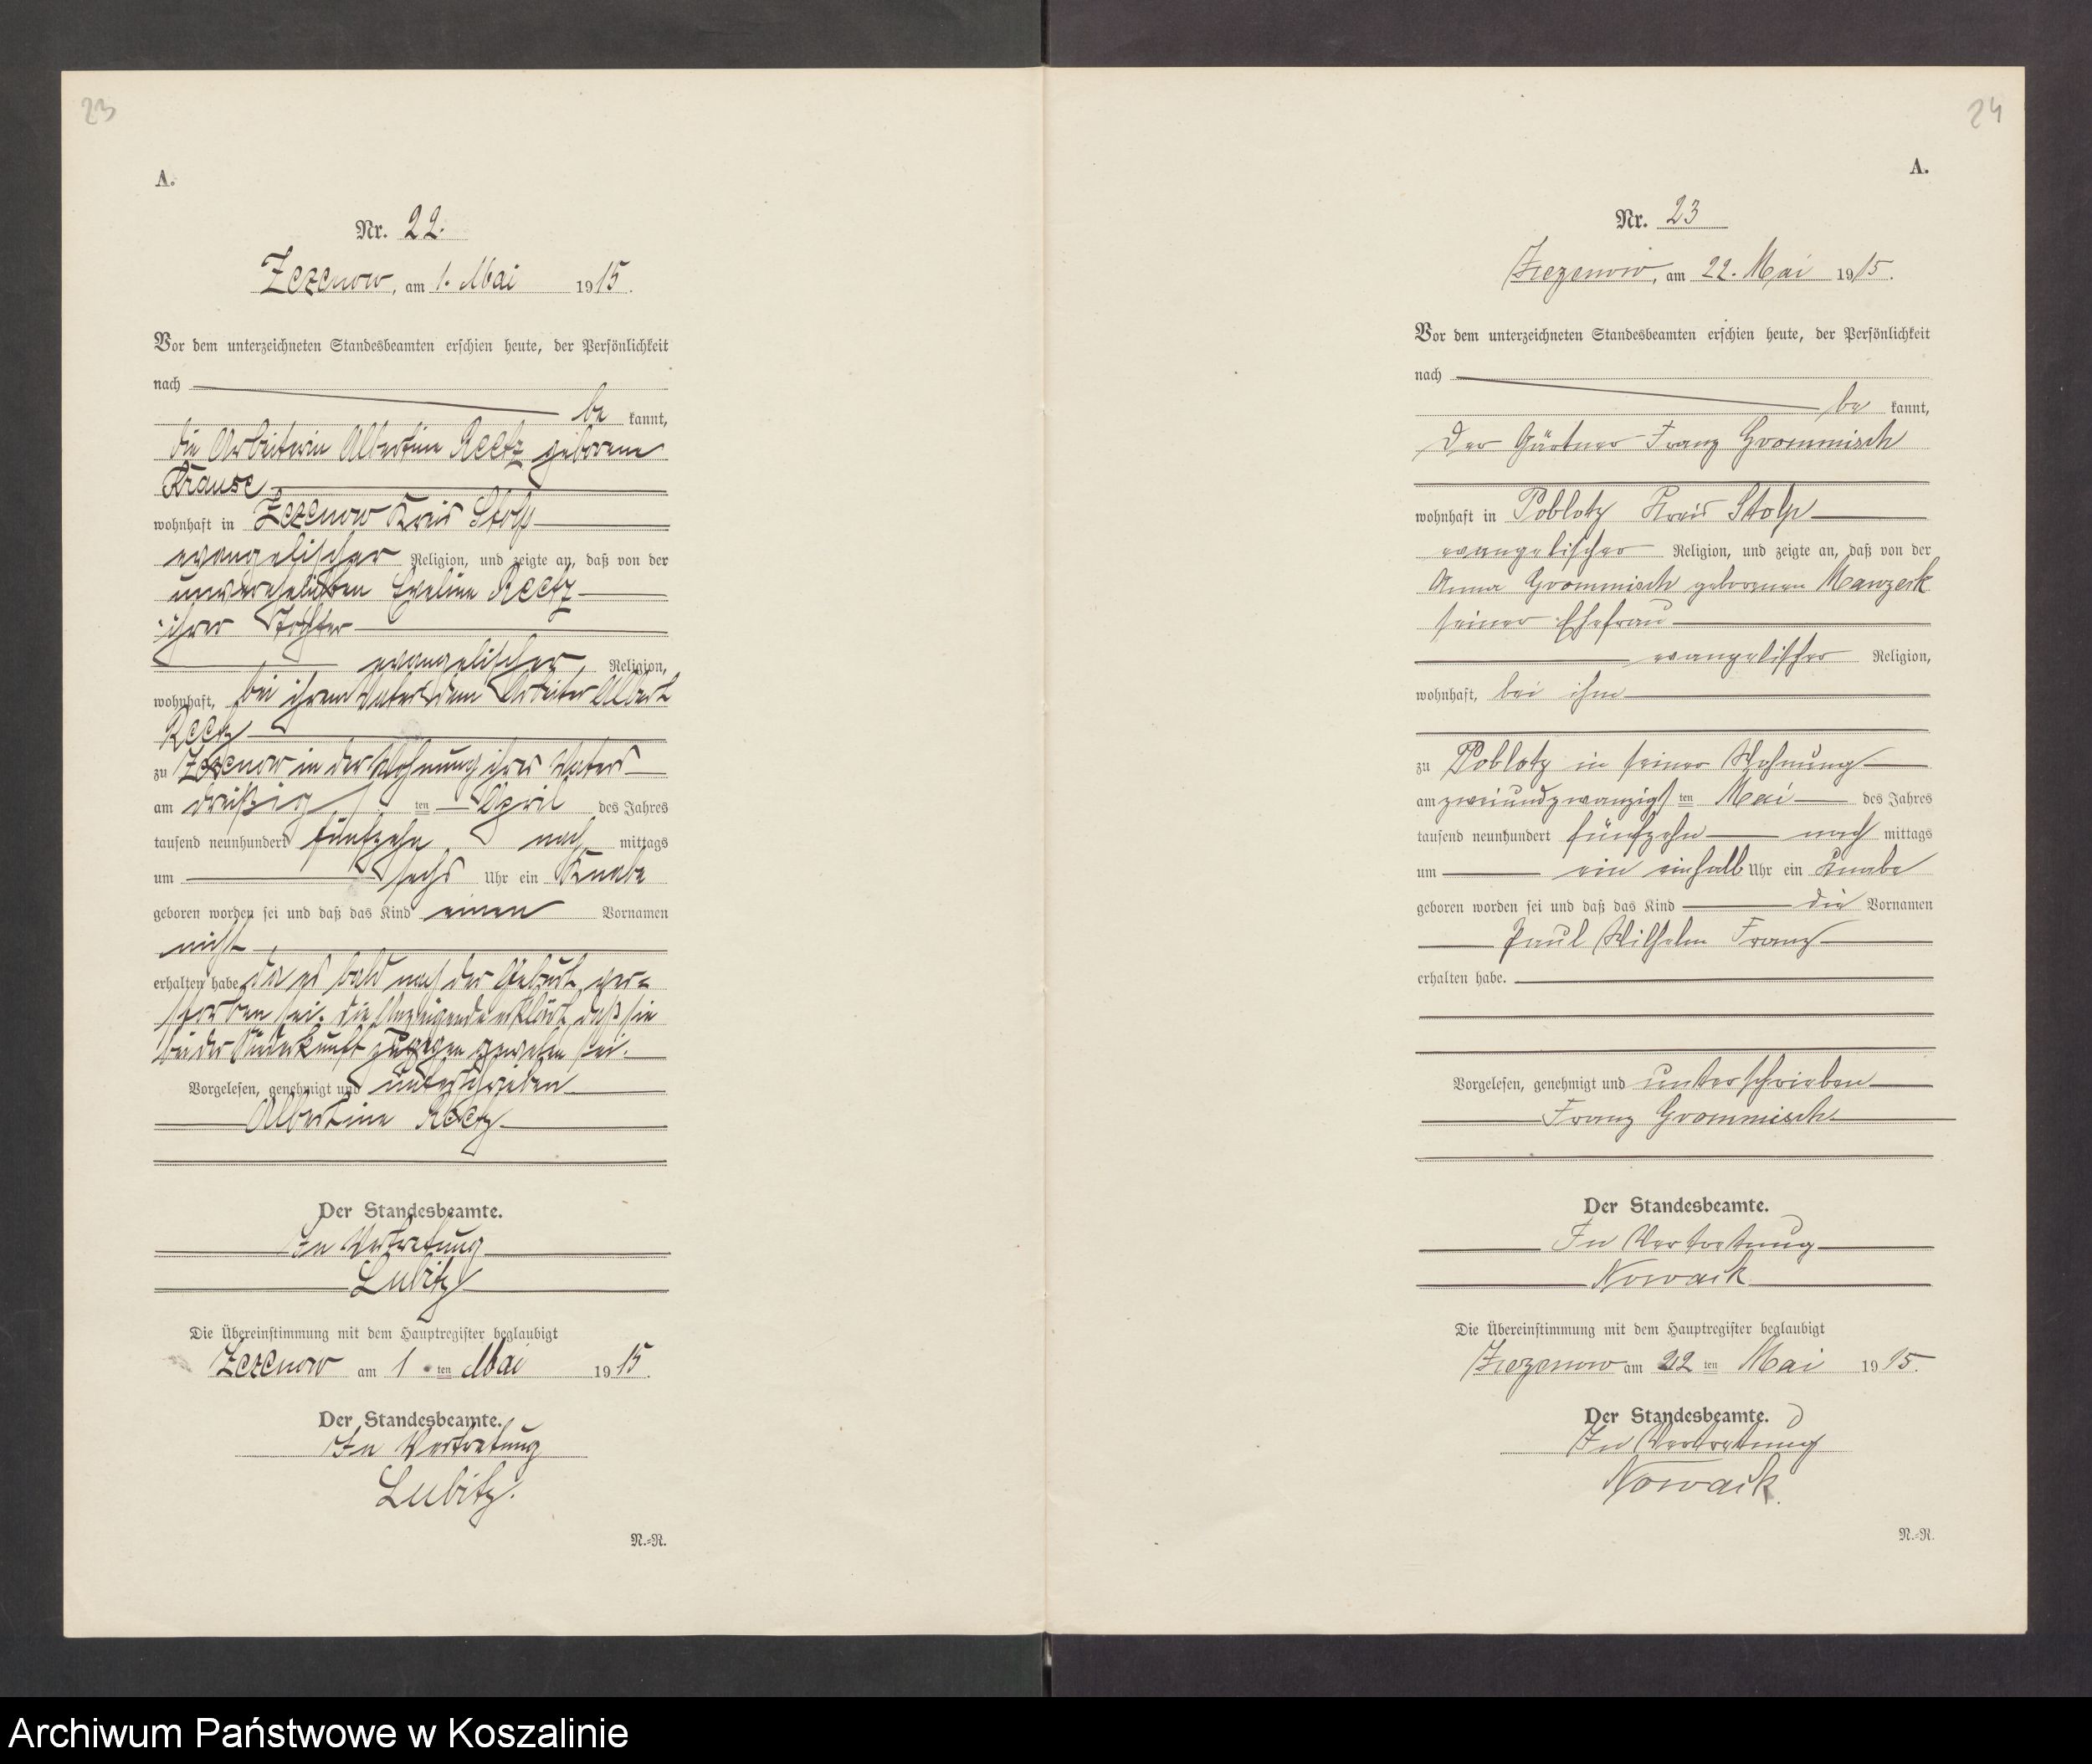 23
A.
Nr. 22.
Zezenow, am 1. Mai 1915.
Vor dem unterzeichneten Standesbeamten erschien heute, der Persönlichkeit
nach
be kannt,
die Arbeiterin Albertine Reetz geborene
Krause
wohnhaft in Zezenow Kreis Stolp
evangelischer Religion, und zeigte an, daß von der
unverehelichten Eveline Reetz
ihrer Tochter
evangelischer Religion,
wohnhaft, bei ihrem Vater dem Arbeiter Albert
Reetz
zu Zezenow in der Wohnung ihres Vaters
am dreißig ten April des Jahres
tausend neunhundert fünfzehn nach mittags
um sechs Uhr ein Knabe
geboren worden sei und daß das Kind einen Vornamen
nicht
erhalten habe da es bald nach der Geburt ver=
storben sei. Die Anzeigende erklärt, daß sie
bei der Niederkunft zugegen gewesen sei.
Vorgelesen, genehmigt und unterschrieben
Albertine Reetz
Der Standesbeamte.
In Vertretung
Lubitz
Die Übereinstimmung mit dem Hauptregister beglaubigt
Zezenow am 1 ten Mai 1915.
Der Standesbeamte.
In Vertretung
Lubitz.
N.=R.
24
A.
Nr. 23
Zezenow, am 22. Mai 1915.
Vor dem unterzeichneten Standesbeamten erschien heute, der Persönlichkeit
nach
be kannt,
der Gärtner Franz Grommisch
wohnhaft in Poblotz Kreis Stolp
evangelischer Religion, und zeigte an, daß von der
Anna Grommisch geborenen
seiner Ehefrau
evangelischer Religion,
wohnhaft, bei ihm
zu Poblotz in seiner Wohnung
am zweiundzwanzigs ten Mai des Jahres
tausend neunhundert fünfzehn nach mittags
um ein einhalb Uhr ein Knabe
geboren worden sei und daß das Kind die Vornamen
Paul Wilhelm Franz
erhalten habe.
Vorgelesen, genehmigt und unterschrieben
Franz Grommisch
Der Standesbeamte.
In Vertretung
Nowack
Die Übereinstimmung mit dem Hauptregister beglaubigt
Zezenow am 22 ten Mai 1915.
Der Standesbeamte.
In Vertretung
Nowack.
N.=R.
Archiwum Państwowe w Koszalinie